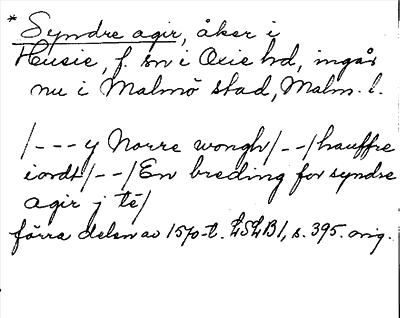 * Syndre agir, åker i
Husie, f. sn i Oxie hd, ingår
nu i Malmö stad, Malm. l.
/--- y Norre wongh/--/hauffre
iordt/--/En breding for syndre
agir j té/
förra delen av 1570-t. LSLB 1, s. 395. orig.